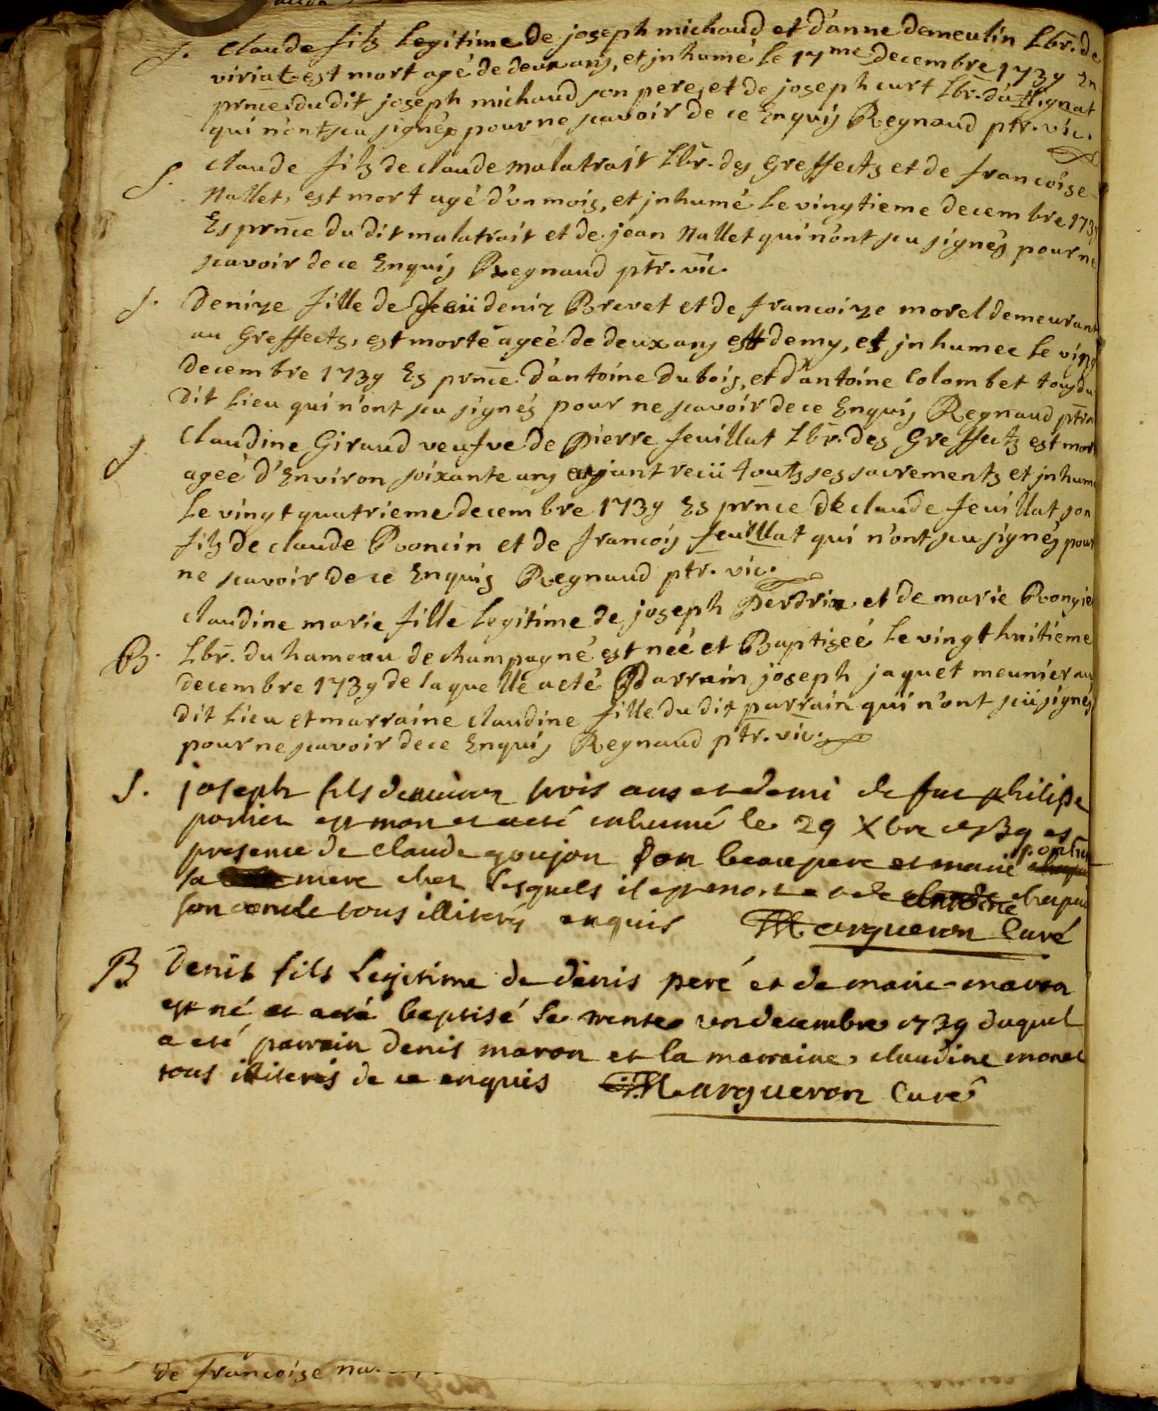 S. claude filz legitime de joseph michaud et d'anne demeulin Lbr. de
viriat est mort agé de deux ans, et jnhumé le 17me decembre 1739 En
prnce. du dit joseph michaud son pere, et de joseph curt Lbr. du
qui n'ont sçu signés pour ne scavoir de ce Enquis Regnaud ptr. vic.
S. claude filz de claude malatrait Lbr. des Greffectz et de francoise
Nallet, est mort agé d'un mois, et jnhumé le vingtieme decembre 1739
Es prnce du dit malatrait et de jean Nallet qui n'ont sçu signés pour ne
scavoir de ce Enquis Regnaud ptr. vic.
S. Denize fille de feü deniz Brevet et de francoize morel demeurant
au Greffectz, est morte ageé de deux ans et demy, et jnhumee le vingt
decembre 1739 Es prnce d'antoine dubois, et d'antoine Colombet tous du
dit lieu qui n'ont sçu signés pour ne scavoir de ce Enquis Regnaud ptr.
S. Claudine Giraud veufve de Pierre feuillat Lbr. des Greffectz est mort
ageé d'Environ soixante ans ayant reçü touts ses sacrements et jnhum
le vingt quatrieme decembre 1739 Es prnce de claude feuillat son
filz de claude Poncin et de francois feuillat qui n'ont sçu signés pour
ne scavoir de ce Enquis Regnaud ptr. vic.
claudine marie fille legitime de joseph Perdrix et de marie
B. Lbr. du hameau de champagné est neé et Baptiseé le vingt huitieme
decembre 1739 de laquelle a eté Parrain joseph jaquet meunier au
dit lieu et marraine claudine fille du dit parrain qui n'ont sçü signés
pour ne scavoir de ce Enquis Regnaud ptr. vic.
S. joseph fils d'environ trois ans et demi de fue philipe
est mort et a eté inhumé le 29 Xbre 1739 es
presence de claude goujon son beau pere et marie
sa mere chez lesquels il est mort et de
son oncle tous illiterés enquis Margueron Curé
B Denis fils legitime de denis peré et de marie maron
est né et a eté baptisé le trente un decembre 1739 duquel
a eté parrain denis maron et la marraine claudine morel
tous illiterés de ce enquis Margueron Curé
de francoise na